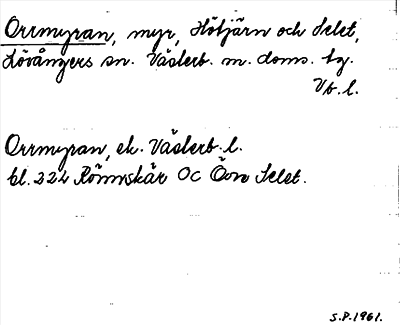 Orrmyran, myr, Hötjärn och Selet,
Lövångers sn. Västerb. m. doms. tg.
Vb. l.
Orrmyran, ek. Västerb. l.
bl. 222 Rönnskär OC Övre Selet.
S.P. 1961.